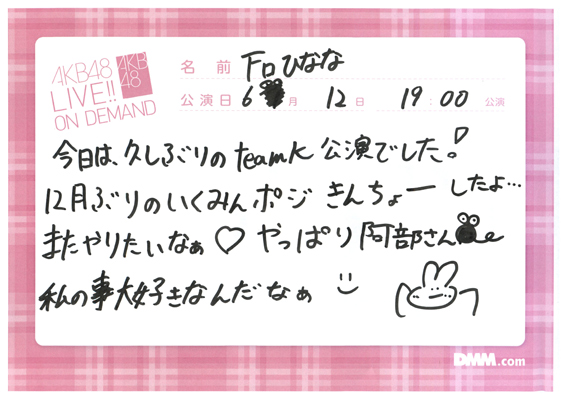 AKB48
LIVE!!
ON DEMAND
AKB
48
名 前 下口ひなな
公演日 6月 12日 19:00 公演
今日は、久しぶりのteamK公演でした!
12月ぶりのいくみんポジ きんちょーしたよ…
またやりたいなぁ♡ やっぱり阿部さん
私の事大好きなんだなぁ
DMM.com